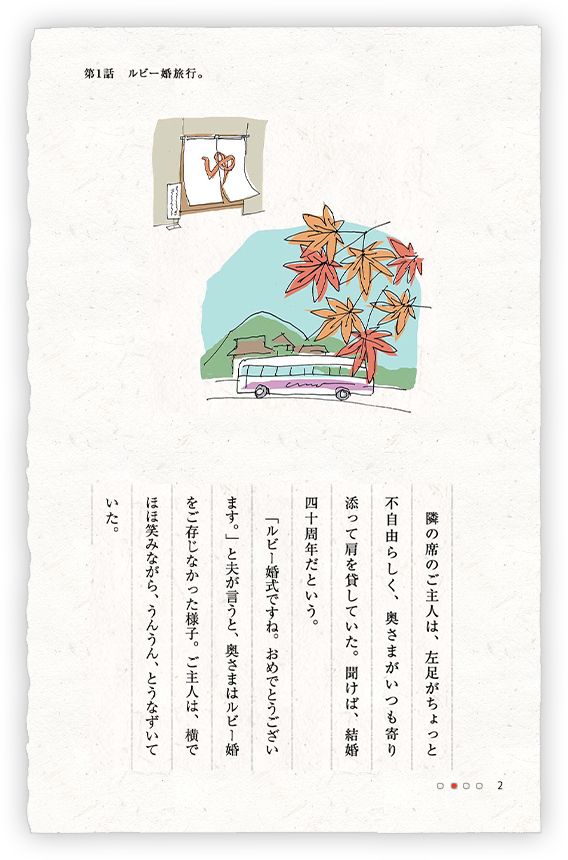 第1話　ルビー婚旅行。
ゆ
隣の席のご主人は、左足がちょっと
不自由らしく、奥さまがいつも寄り
添って肩を貸していた。聞けば、結婚
四十周年だという。
「ルビー婚式ですね。おめでとうござい
ます。」と夫が言うと、奥さまはルビー婚
をご存じなかった様子。ご主人は、横で
ほほ笑みながら、うんうん、とうなずいて
いた。
2